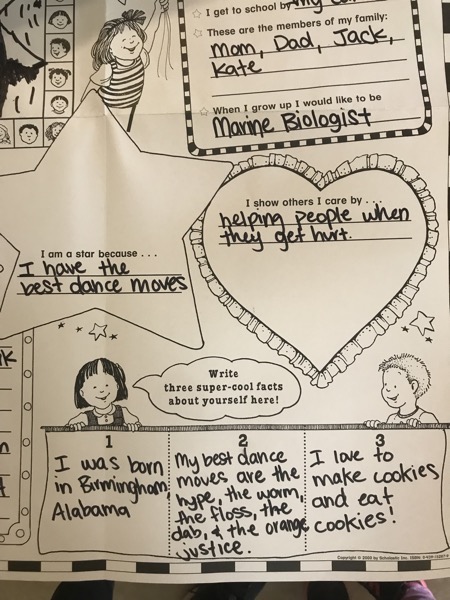 I get to school by my
These are the members of my family:
Mom, Dad, Jack,
Kate
When I grow up I would like to be
Marine Biologist
I show others I care by . . .
helping people when
they get hurt.
I am a star because . . .
I have the
best dance moves
Write
three super-cool facts
about yourself here!
1
I was born
in Birmingham,
Alabama
2
My best dance
moves are the
hype, the worm,
the floss, the
dab, & the orange
justice.
3
I love to
make cookies
and eat
cookies!